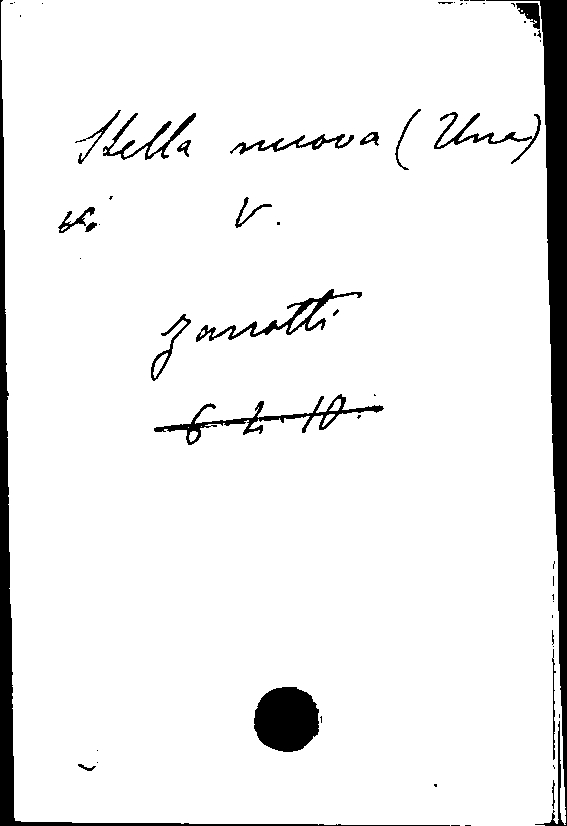 Stella nuova (Una)
V.
Zanotti
6. 2. 10.